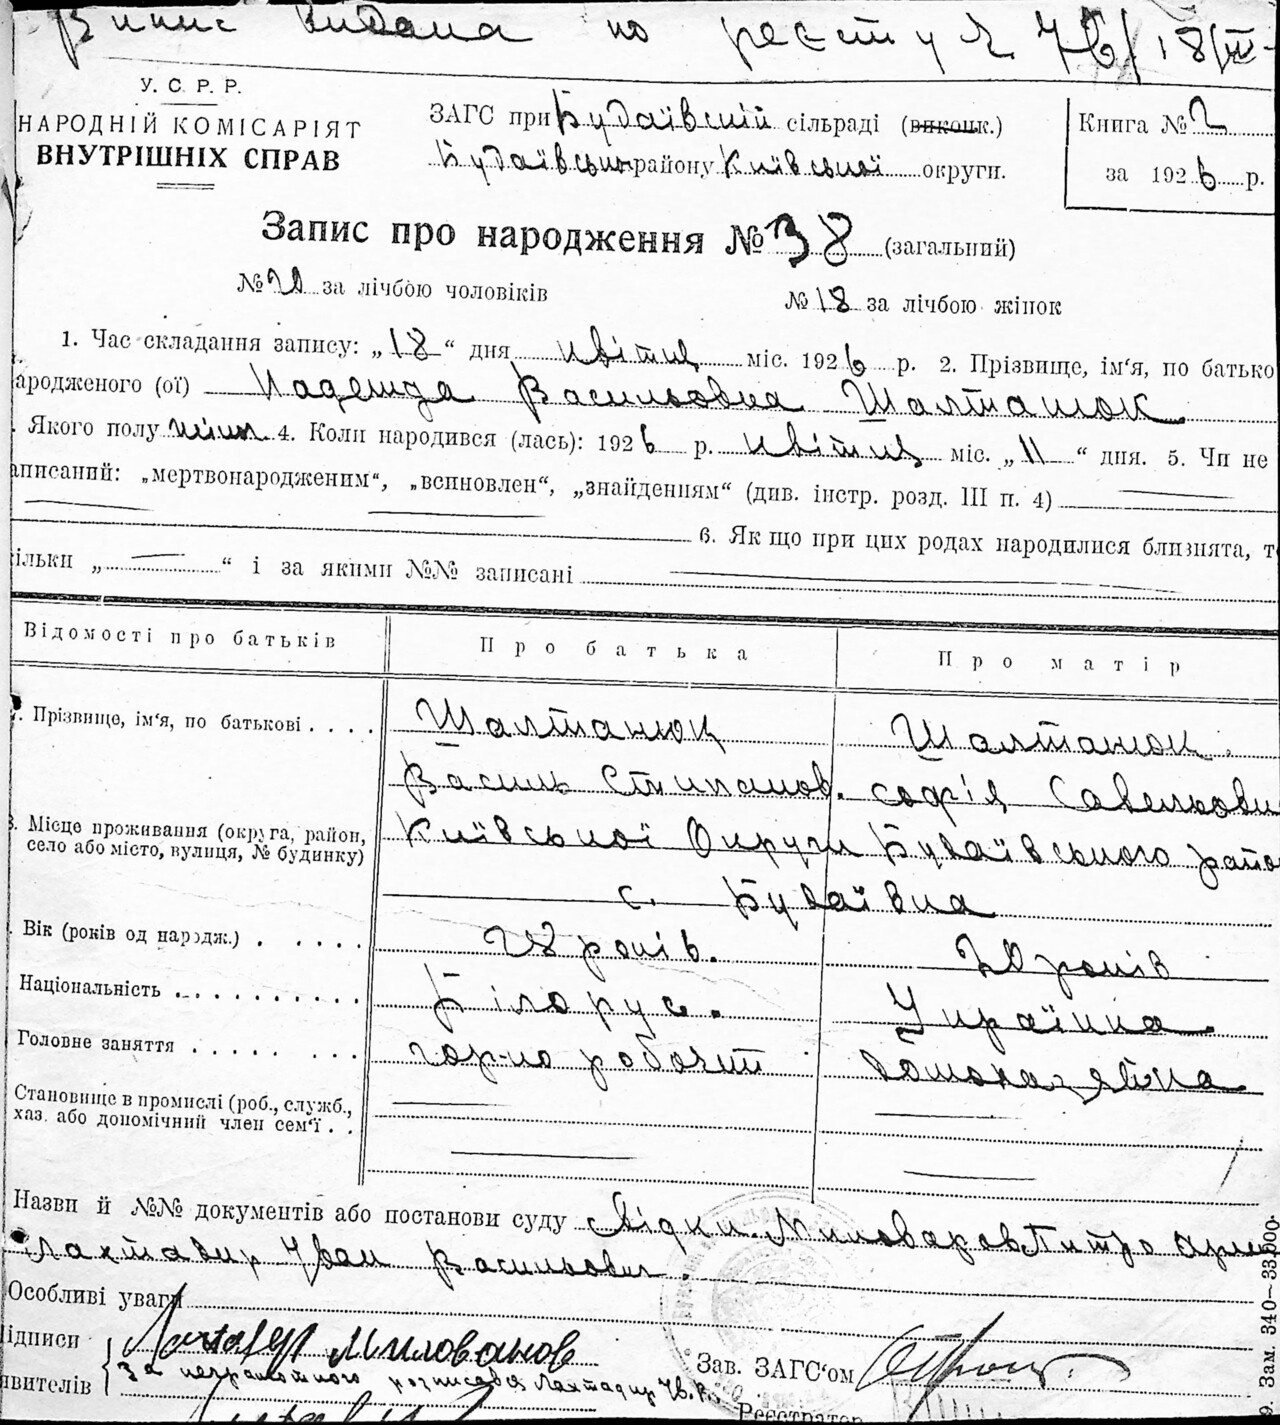 Випис видана по реєстру № 76/18/III
У. С. Р. Р.
НАРОДНІЙ КОМІСАРІЯТ
ВНУТРІШНІХ СПРАВ
ЗАГС при Будаївській сільраді (виконк.)
Будаївськ району Київської округи.
Книга № 2
за 1926 р.
Запис про народження № 38 (загальний)
№ 20 за лічбою чоловіків № 18 за лічбою жінок
1. Час складання запису: „18“ дня квітня міс. 1926 р. 2. Прізвище, ім‘я, по батько
ародженого (ої) Надежда Васильовна Шалтанюк
Якого полу жін. 4. Коли народився (лась): 1926 р. квітня міс. „11“ дня. 5. Чи не
аписаний: „мертвонародженим“, „всиновлен“, „знайденням“ (див. інстр. розд. III п. 4)
6. Як що при цих родах народилися близнята, т
ільки „ “ і за якими №№ записані
Відомості про батьків Про батька Про матір
Прізвище, ім‘я, по батькові . . . . Шалтанюк Шалтанюк.
Василь Стипанов. Софія Савельовн
Місце проживання (округа, район, Київської Округи Будаївського райо
село або місто, вулиця, № будинку)
с. Будаївка
Вік (років од народж.) . . . . . 28 років. 20 років
Національність . . . . . . . . . . Білорус. Українка.
Головне заняття . . . . . . . . . чор-но робочий домохазяйка
Становище в промислі (роб., служб.,
хаз. або допомічний член сем‘ї . .
Назви й №№ документів або постанови суду свідки. Миловаров Питро
Лахтадир Іван Васильович.
Особливі уваги
ідписи Милованов
явителів за неграмотного розписався Лахтадир Ів. В.
Зав. ЗАГС‘ом
Реєстратор
9. Зам. 340—33.000.